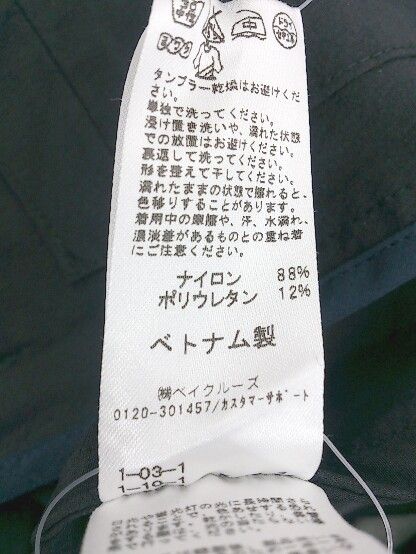 タンブラー乾燥はお避けくだ
さい。
単独で洗ってください。
浸け置き洗いや、濡れた状態
での放置はお避けください。
裏返して洗ってください。
形を整えて干してください。
濡れたままの状態で擦れると、
色移りすることがあります。
着用中の摩擦や、汗、水濡れ、
濃淡差があるものとの重ね着
にご注意ください。
ナイロン 88%
ポリウレタン 12%
ベトナム製
㈱ベイクルーズ
0120-301457/カスタマーサポート
1-03-1
1-19-1